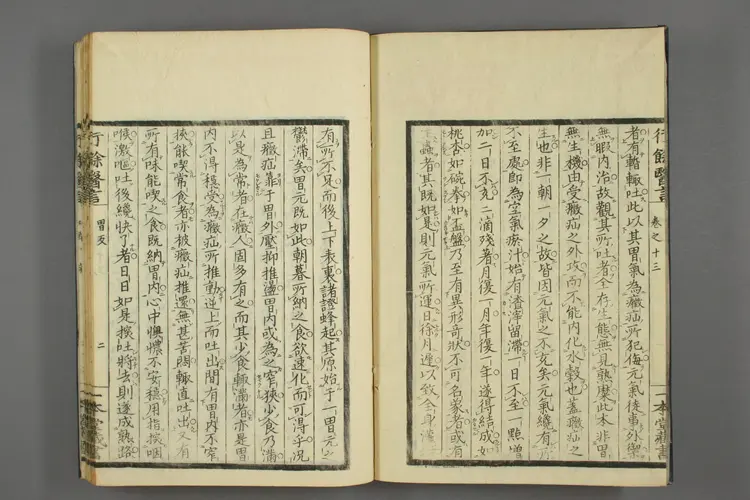 行餘醫言 卷之十三 一本堂藏書
者有輙輙吐此以其胃氣為癥疝所犯侮元氣徒事外禦
無暇内治故觀其所吐者全存生態無見熟糜此本非胃
無生機由受癥疝之外攻而不能内化水穀也蓋癥疝之
生也非一朝一夕之故皆因元氣之不充矣元氣纔有所
不至處即為空氣瘀汁始有渣滓留滯一日不至一點增
加二日不充二滴殘著月復一月年復一年遂得結成如
桃杏如碗拳如盂盤乃至有異形奇狀不可名象者或有
生蟲者其既如是則元氣所運日徐月遲以致全身
有所不足而後上下表裏諸證蜂起其原始于一胃元之
鬱滯矣胃元既如此朝暮所納之食欲速化而可得乎況
且癥疝靠于胃外壓抑推盪胃内或為之窄狹少食乃滿
以是為常者在癥人固多有之而其少食輙滿者亦是胃
内不得穩受為癥疝所推動逆上而吐出間有胃内不窄
狹能喫常食者亦被癥疝推還無甚苦悶輙直吐出又有
所有味能喫之食既納胃内心中懊憹不安穩用指探咽
喉激嘔吐後纔快了者日日如是撩吐將去則遂成熟路
行餘醫言 胃反 二 一本堂藏書